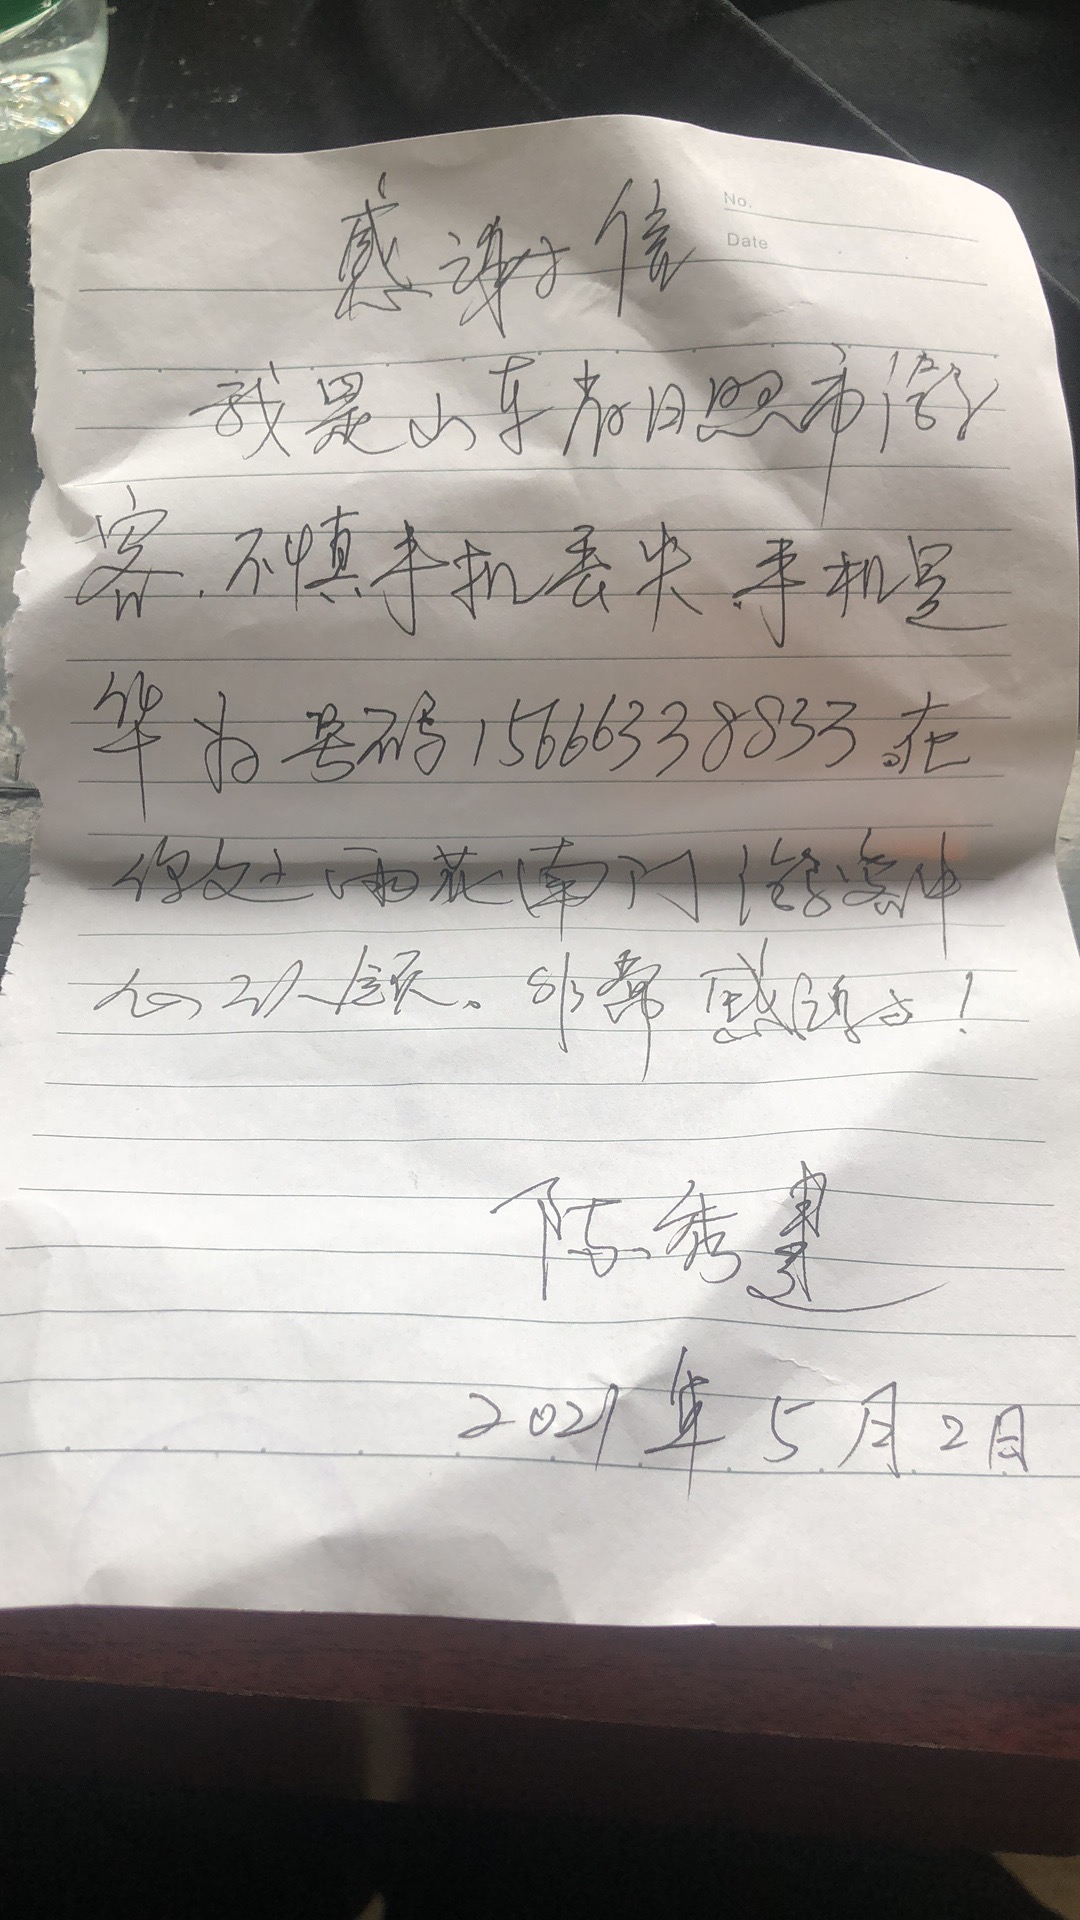 No.
Date
感谢信
我是山东省日照市游
客.不慎手机丢失.手机是
华为号码15666338833在
你处雨花南门游客中
心认领。非常感谢!
陈秀建
2021年5月2日